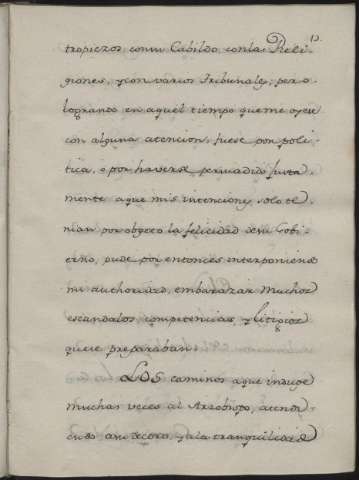 tropiezos con su Cabildo, con las Reli-
giones, y con varios Tribunales; pero
logrando en aquel tiempo que me oyese
con alguna atencion, fuese por poli-
tica, ó por haverse persuadido justa-
mente a que mis intenciones solo te-
nian por obgeto la felicidad de su Gobi-
erno, pude por entonces interponiendo
mi authoridad, embarazar muchos
escandalos, competencias, y litigios
que se preparaban.
LOS caminos a que induge
muchas veces al Arzobispo, atendi-
endo a su decoro, y a la tranquilidad